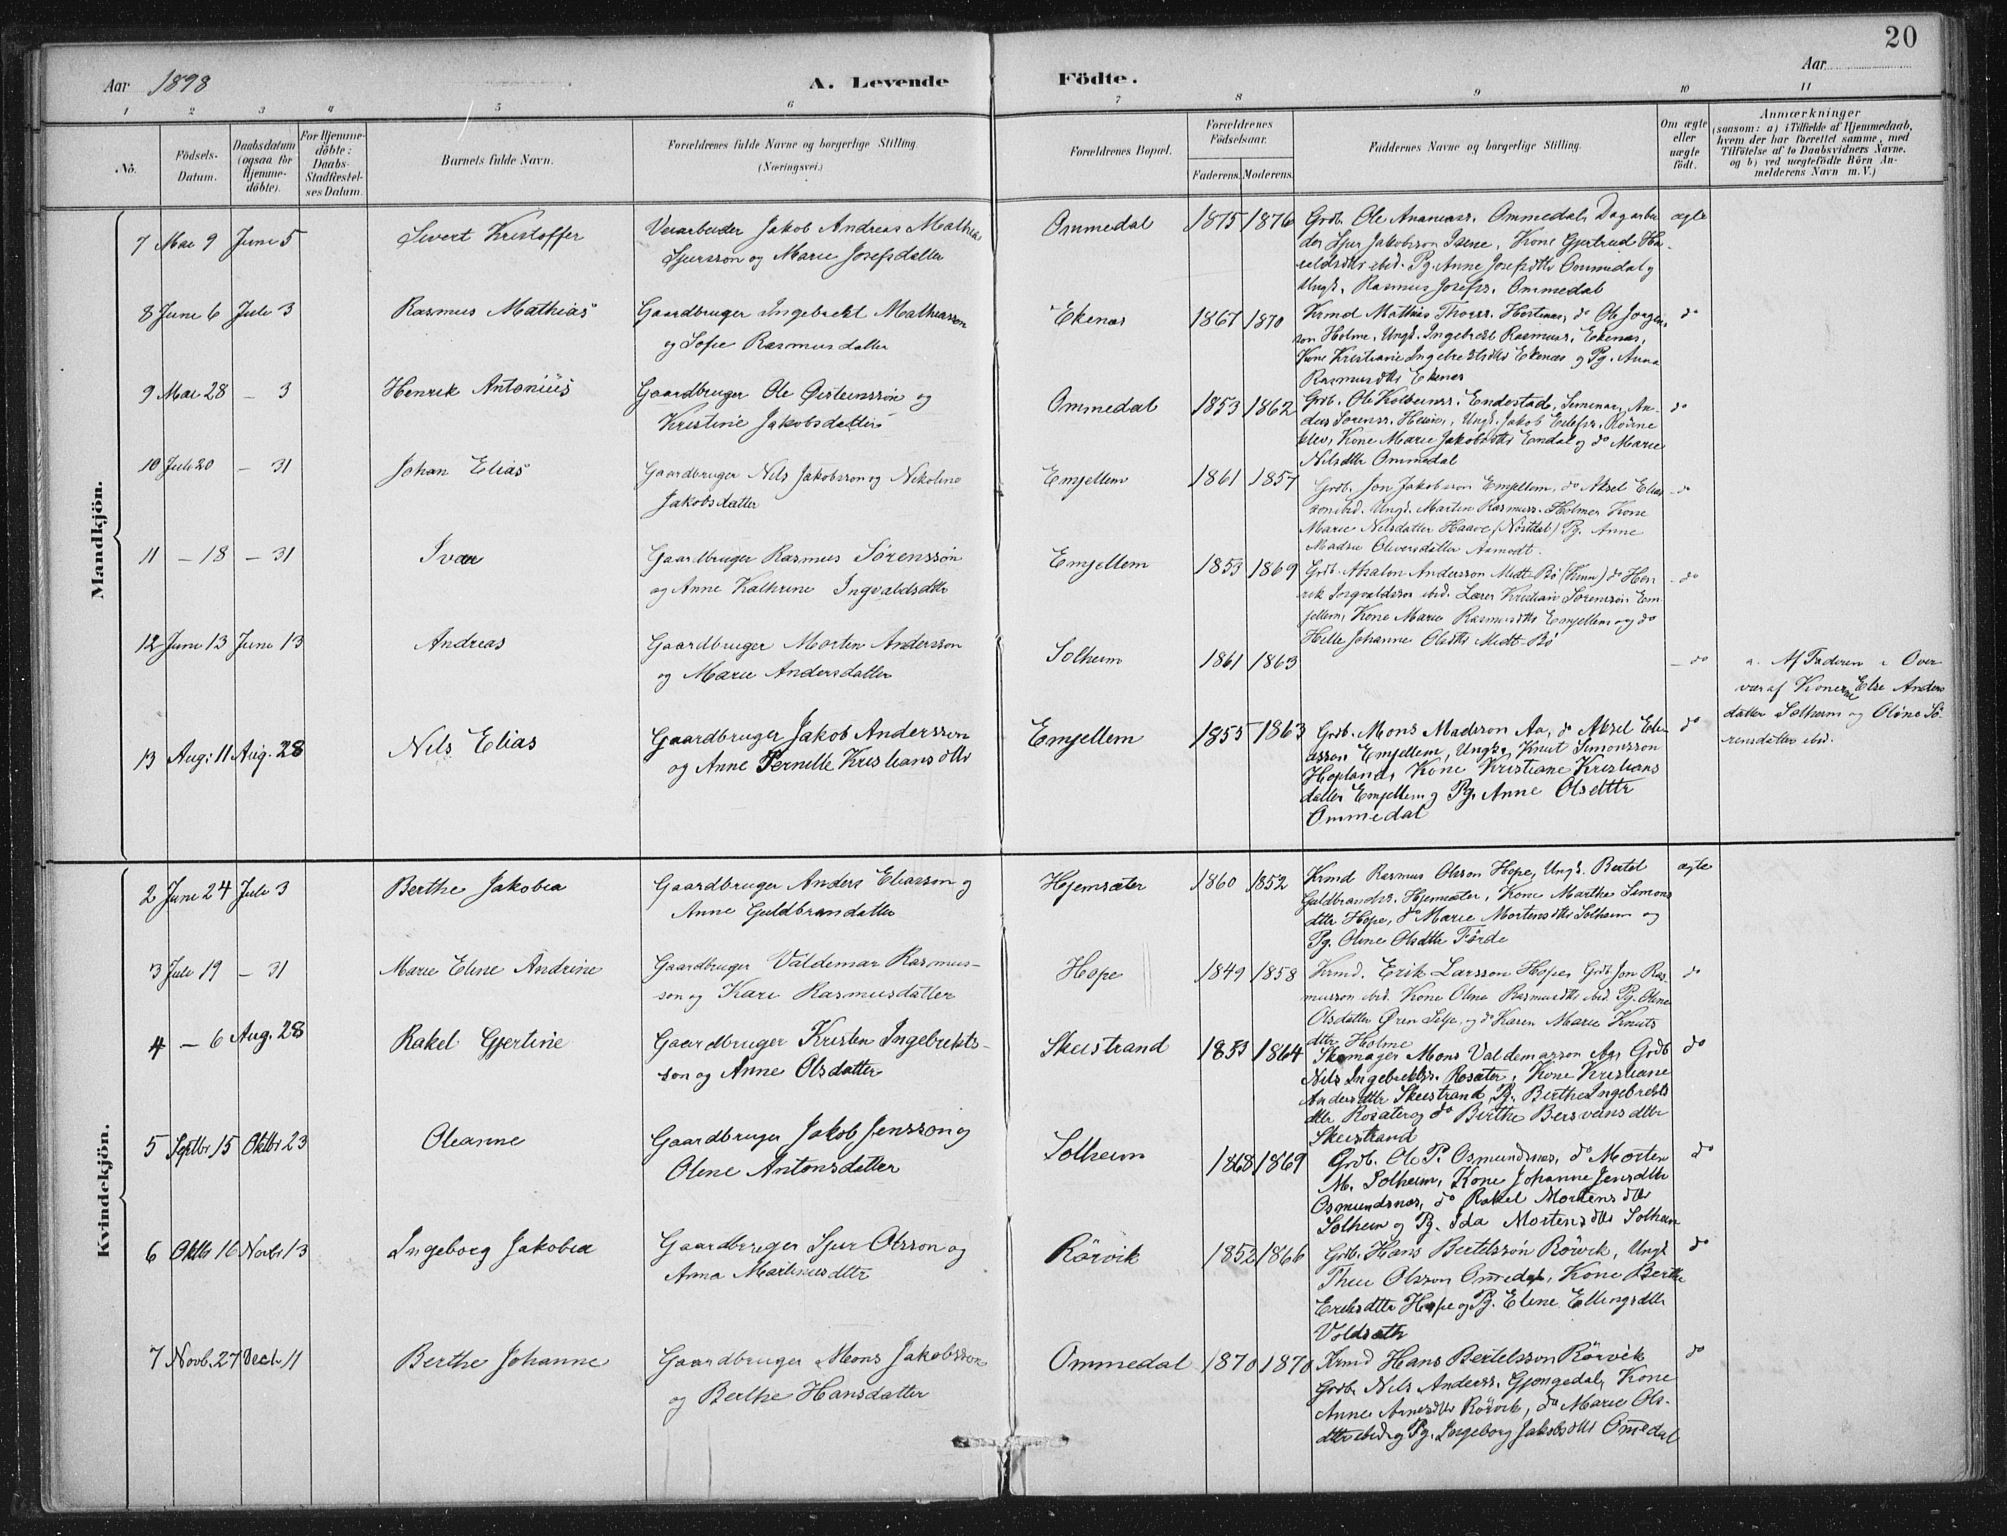 20
Aar 1898
A. Levende
Födte.
Aar
1 2 3 4 5 6 7 8 9 10 11
No.
Födsels-Datum.
Daabsdatum (ogsaa for Hjemme-döbte).
For Hjemme-döbte: Daabs-Stadfæstel-ses Datum.
Barnets fulde Navn.
Forældrenes fulde Navne og borgerlige Stilling. (Næringsvei.)
Forældrenes Bopæl.
Forældrenes Födselsaar.
Faderens. Moderens.
Faddernes Navne og borgerlige Stilling.
Om ægte eller uægte födt.
Anmærkninger
(saasom: a) i Tilfælde af Hjemmedaab, hvem der har forrettet samme, med Tilföielse af to Daabsvidners Navne. og b) ved uægtefödte Börn An-melderens Navn m. V.)
Mandkjön.
7 Mai 9 Juni 5 Sivert Kristoffer
Veiarbeider Jakob Andreas Mathias
Sjursson og Marie Josefsdatter
Ommedal 1875 1876
Grdb. Ole Ananiass. Ommedal, Dagarbei
der Sjur Jakobsson Isene, Kone Gjertrud Ha-
raldsdtr ibid. Pg. Anne Josefsdtr Ommedal og
Ungk. Rasmus Josefss. Ommedal
ægte
8 Juni 6 Juli 3 Rasmus Mathias
Gaardbruger Ingebrekt Mathiasson
og Sofie Rasmusdatter
Ekenæs 1867 1870
Krmd Mathias Thorss. Hestenes, do Ole Jörgen
son Holme, Ungk. Ingebrekt Rasmuss. Ekenæs,
Kone Kristiane Ingebrektsdtr Ekenæs og Pg. Anna
Rasmusdtr Ekenæs
do
9 Mai 28 - 3 Henrik Antonius
Gaardbruger Ole Øisteinssön og
Kristine Jakobsdatter
Ommedal 1853 1862
Grdb. Ole Kolbeinss. Endestad, Seminar, An-
ders Sörenss. Heien, Ungk. Jakob Eilefss. Rönne
klev, Kone Marie Jakobsdtr Emdal og do Marie
Nilsdtr Ommedal
do
10 Juli 20 - 31 Johan Elias
Gaardbruger Nils Jakobsson og Nikoline
Jakobsdatter
Emjellem 1861 1857
Grdb. Jon Jakobsson Emjellem, do Aksel Elias
son ibid. Ungk. Marten Rasmuss. Holme, Kone
Marie Nilsdatter Haave (Norddal) Pg. Anne
Madsie Oliversdatter Aamodt.
do
11 - 18 - 31 Ivar
Gaardbruger Rasmus Sörenssön
og Anne Kathrine Ingvaldsdtr
Emjellem 1853 1869
Grdb. Absalon Andersson Midt-Bö (Kinn) do Hen
rik Ingvaldsson ibid. Lærer Kristian Sörenssön Em
jellem, Kone Marie Rasmusdtr Emjellem og do
Helle Johanne Olsdtr Midt-Bö
do
12 Juni 13 Juni 13 Andreas
Gaardbruger Morten Andersson
og Marie Andersdatter
Solheim 1861 1863
- do
a. Af Faderen i Over
vær af Konerne Else Anders
datter Solheim og Oline Sö
rensdatter ibid.
13 Aug: 11 Aug. 28 Nils Elias
Gaardbruger Jakob Andersson
og Anne Pernille Kristiansdtr
Emjellem 1855 1863
Grdb. Mons Madsson Aa, do Aksel Eli
asson Emjellem, Ungk. Knut Simonsson
Hopland, Kone Kristiane Kristians
datter Emjellem og Pg. Anne Olsdtr
Ommedal
do
Kvindekjön.
2 Juni 24 Juli 3 Berthe Jakobea
Gaardbruger Anders Eliasson og
Anne Guldbrandsdatter
Hjemsæter 1860 1852
Krmd Rasmus Olsson Hope, Ungk. Bertel
Guldbrandss. Hjemsæter, Kone Marthe Simons
dtr Hope, do Marie Mortensdtr Solheim og
Pg. Oline Olsdtr Förde
ægte
3 Juli 19 - 31 Marie Eline Andrine
Gaardbruger Valdemar Rasmus-
son og Kari Rasmusdatter
Hope 1849 1858
Krmd. Erik Larsson Hope, Grdb. Jon Ras-
musson ibid. Kone Oline Rasmusdtr ibid. Pg. Oline
Olsdatter Øren Selje, og do Karen Marie Knuts
dtr Holme
do
4 - 6 Aug. 28 Rakel Gjertine
Gaardbruger Kristen Ingebrikts-
son og Anne Olsdatter
Skeistrand 1853 1864
Skomager Mons Valdemarsson Aa, Grdb
Nils Ingebriktss. Rosæter, Kone Kristiane
Andersdtr Skeistrand, Pg. Berthe Ingebrikts
dtr Rosæter og do Berthe Bersveinsdtr
Skeistrand
do
5 Septbr 15 Oktbr 23 Oleanne
Gaardbruger Jakob Jensson og
Oline Antonsdatter
Solheim 1868 1869
Grdb. Ole P. Osmundnes, do Morten
M. Solheim, Kone Johanne Jensdtr
Osmundsnes, do Rakel Mortensdtr
Solheim og Pg. Ida Mortensdtr Solheim
do
6 Oktbr 16 Novbr 13 Ingeborg Jakobea
Gaardbruger Sjur Olsson og
Anna Martinusdtr
Rörvik 1852 1866
Grdb. Hans Bertelssön Rörvik, Ungk
Thue Olsson Omedal, Kone Berthe
Eriksdtr Hope og Pg. Eline Ellingsdtr
Voldsæth
do
7 Novb. 27 Decb. 11 Berthe Johanne
Gaardbruger Mons Jakobsson
og Berthe Hansdatter
Ommedal 1870 1870
Krmd Hans Bertelsson Rörvik
Grdb. Nils Anderss. Gjengedal, Kone
Anne Arnesdtr Rörvik, do Marie Ols-
dtr ibid og Pg. Ingeborg Jakobsdtr Omedal
do